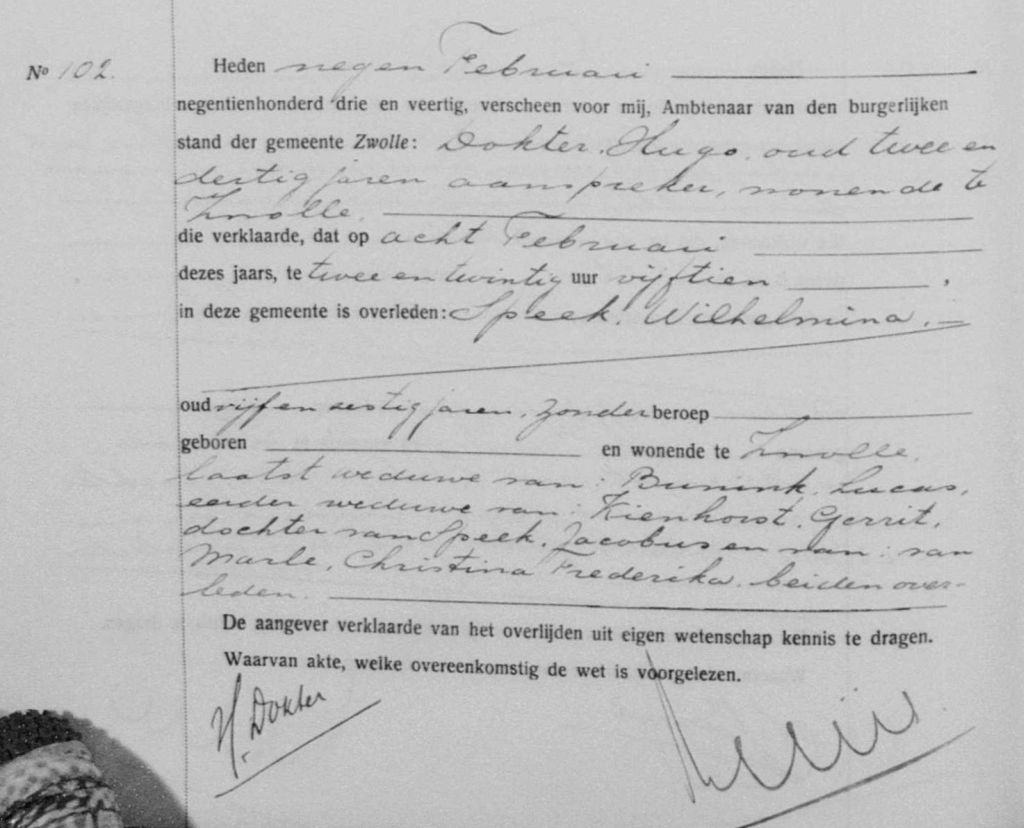 No 102.
Heden negen Februari
negentienhonderd drie en veertig, verscheen voor mij, Ambtenaar van den burgerlijken
stand der gemeente Zwolle: Dokter, Hugo, oud twee en
dertig jaren aanspreker, wonende te
Zwolle,
die verklaarde, dat op acht Februari
dezes jaars, te twee en twintig uur vijftien ,
in deze gemeente is overleden: Speek, Wilhelmina,
oud vijf en zestig jaren, zonder beroep
geboren en wonende te Zwolle,
laatst weduwe van: Bunink, Lucas,
eerder weduwe van: Kienhorst, Gerrit,
dochter van Speek, Jacobus en van: van
Marle, Christina Frederika, beiden over-
leden.
De aangever verklaarde van het overlijden uit eigen wetenschap kennis te dragen.
Waarvan akte, welke overeenkomstig de wet is voorgelezen.
H. Dokter